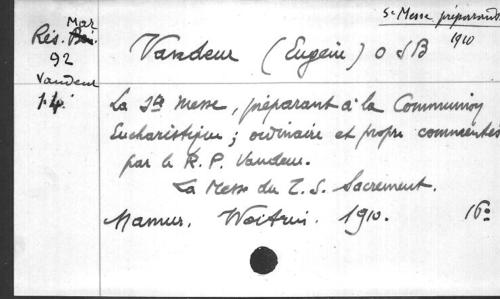 Ste Messe préparant
1910
Mar
Rés.
92
Vandeur
Vandeur (Eugène) O S B
La Ste Messe, préparant à la Communion
Eucharistique ; ordinaire et propre commentés
par le R. P. Vandeur.
La Messe du T. S. Sacrement.
Namur. 1910. 16o